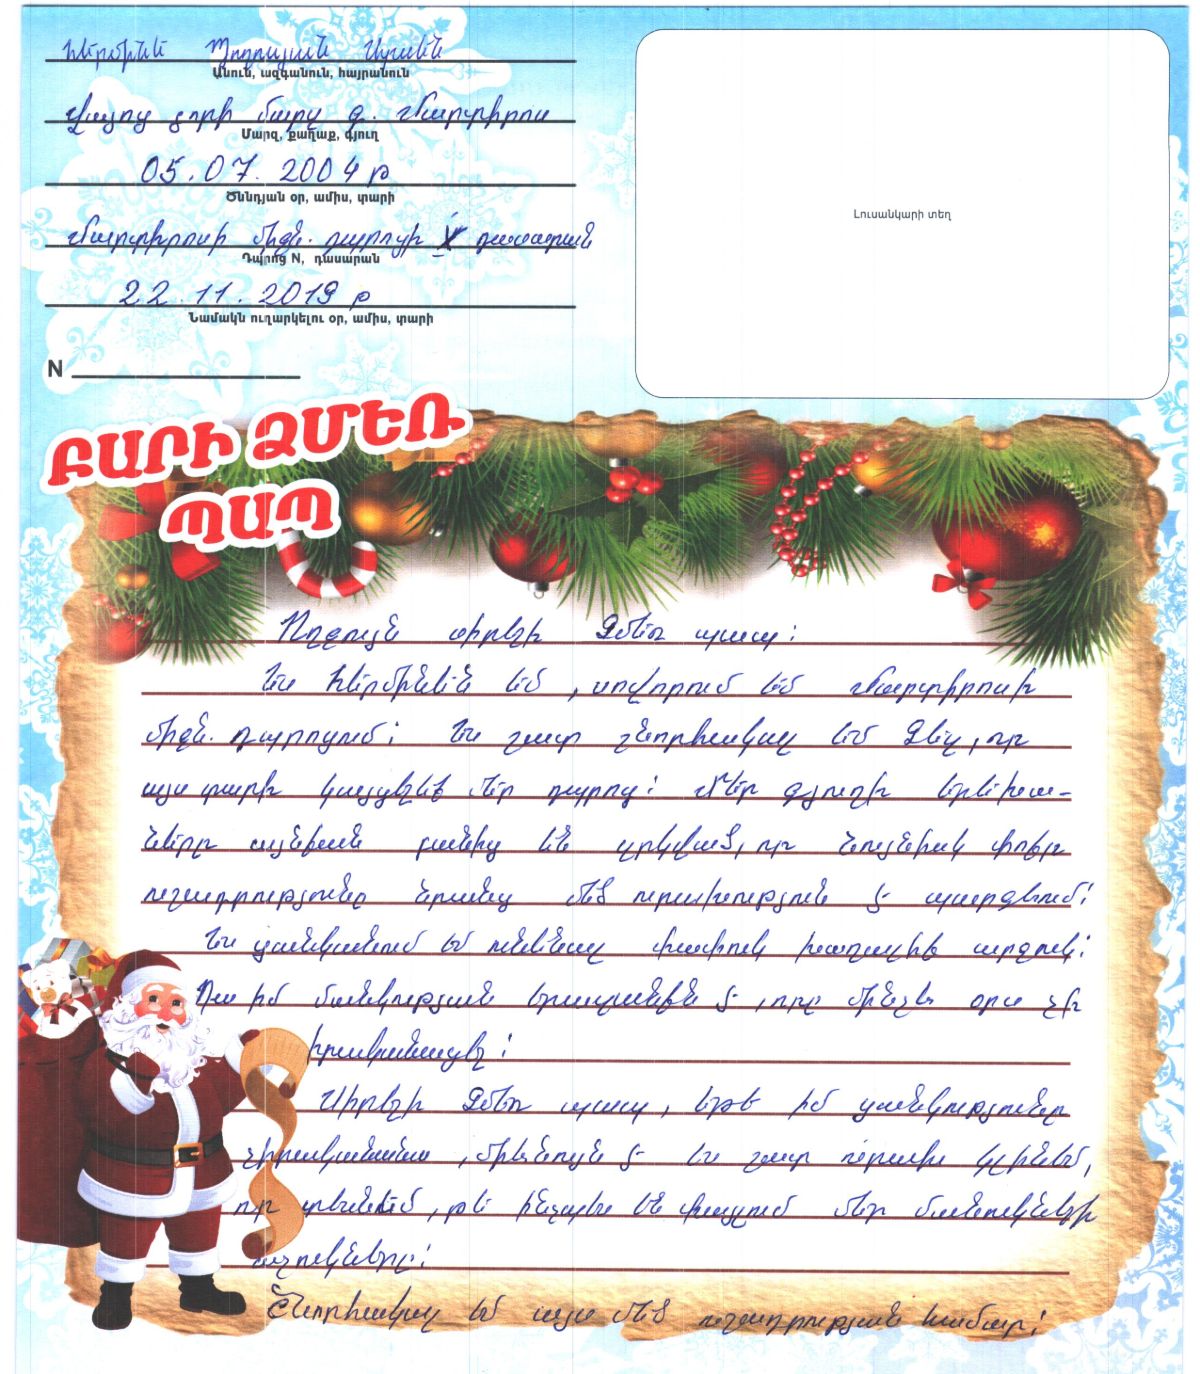 Հերմինե Պողոսյան Արսենի
Անուն, ազգանուն, հայրանուն
Վայոց ձորի մարզ գ. Մարտիրոս
Մարզ, քաղաք, գյուղ
05.07.2004 թ
Ծննդյան օր, ամիս, տարի
Մարտիրոսի միջն. դպրոցի X դասարան
Դպրոց N, դասարան
22.11.2019 թ
Նամակն ուղարկելու օր, ամիս, տարի
N
Լուսանկարի տեղ
ԲԱՐԻ ՁՄԵՌ
ՊԱՊ
Ողջույն սիրելի Ձմեռ պապ:
Ես Հերմինեն եմ, սովորում եմ Մարտիրոսի
միջն. դպրոցում: Ես շատ շնորհակալ եմ Ձեզ, որ
այս տարի կայցելեք մեր դպրոց: Մեր գյուղի երեխա-
ները այնքան ջանից են զրկված, որ նույնիսկ փոքր
ուշադրությունը նրանց մեծ ուրախություն է պարգևում:
Ես ցանկանում եմ ունենալ փափուկ խաղալիք արջուկ:
Դա իմ մանկության երազանքն է, որը մինչև օրս չի
իրականացել:
Սիրելի Ձմեռ պապ, եթե իմ ցանկությունը
չիրականանա, միևնույն է ես շատ ուրախ կլինեմ,
որ տեսնեմ, թե ինչպես են փայլում մեր մանուկների
աչուկները:
Շնորհակալ եմ այս մեծ ուշադրության համար: